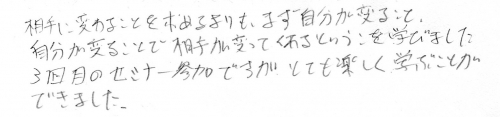 相手に変わることを求めるよりも、まず自分が変ること。
自分が変ることで相手が変ってくれるということを学びました
3回目のセミナー参加ですが とても楽しく学ぶことが
できました。